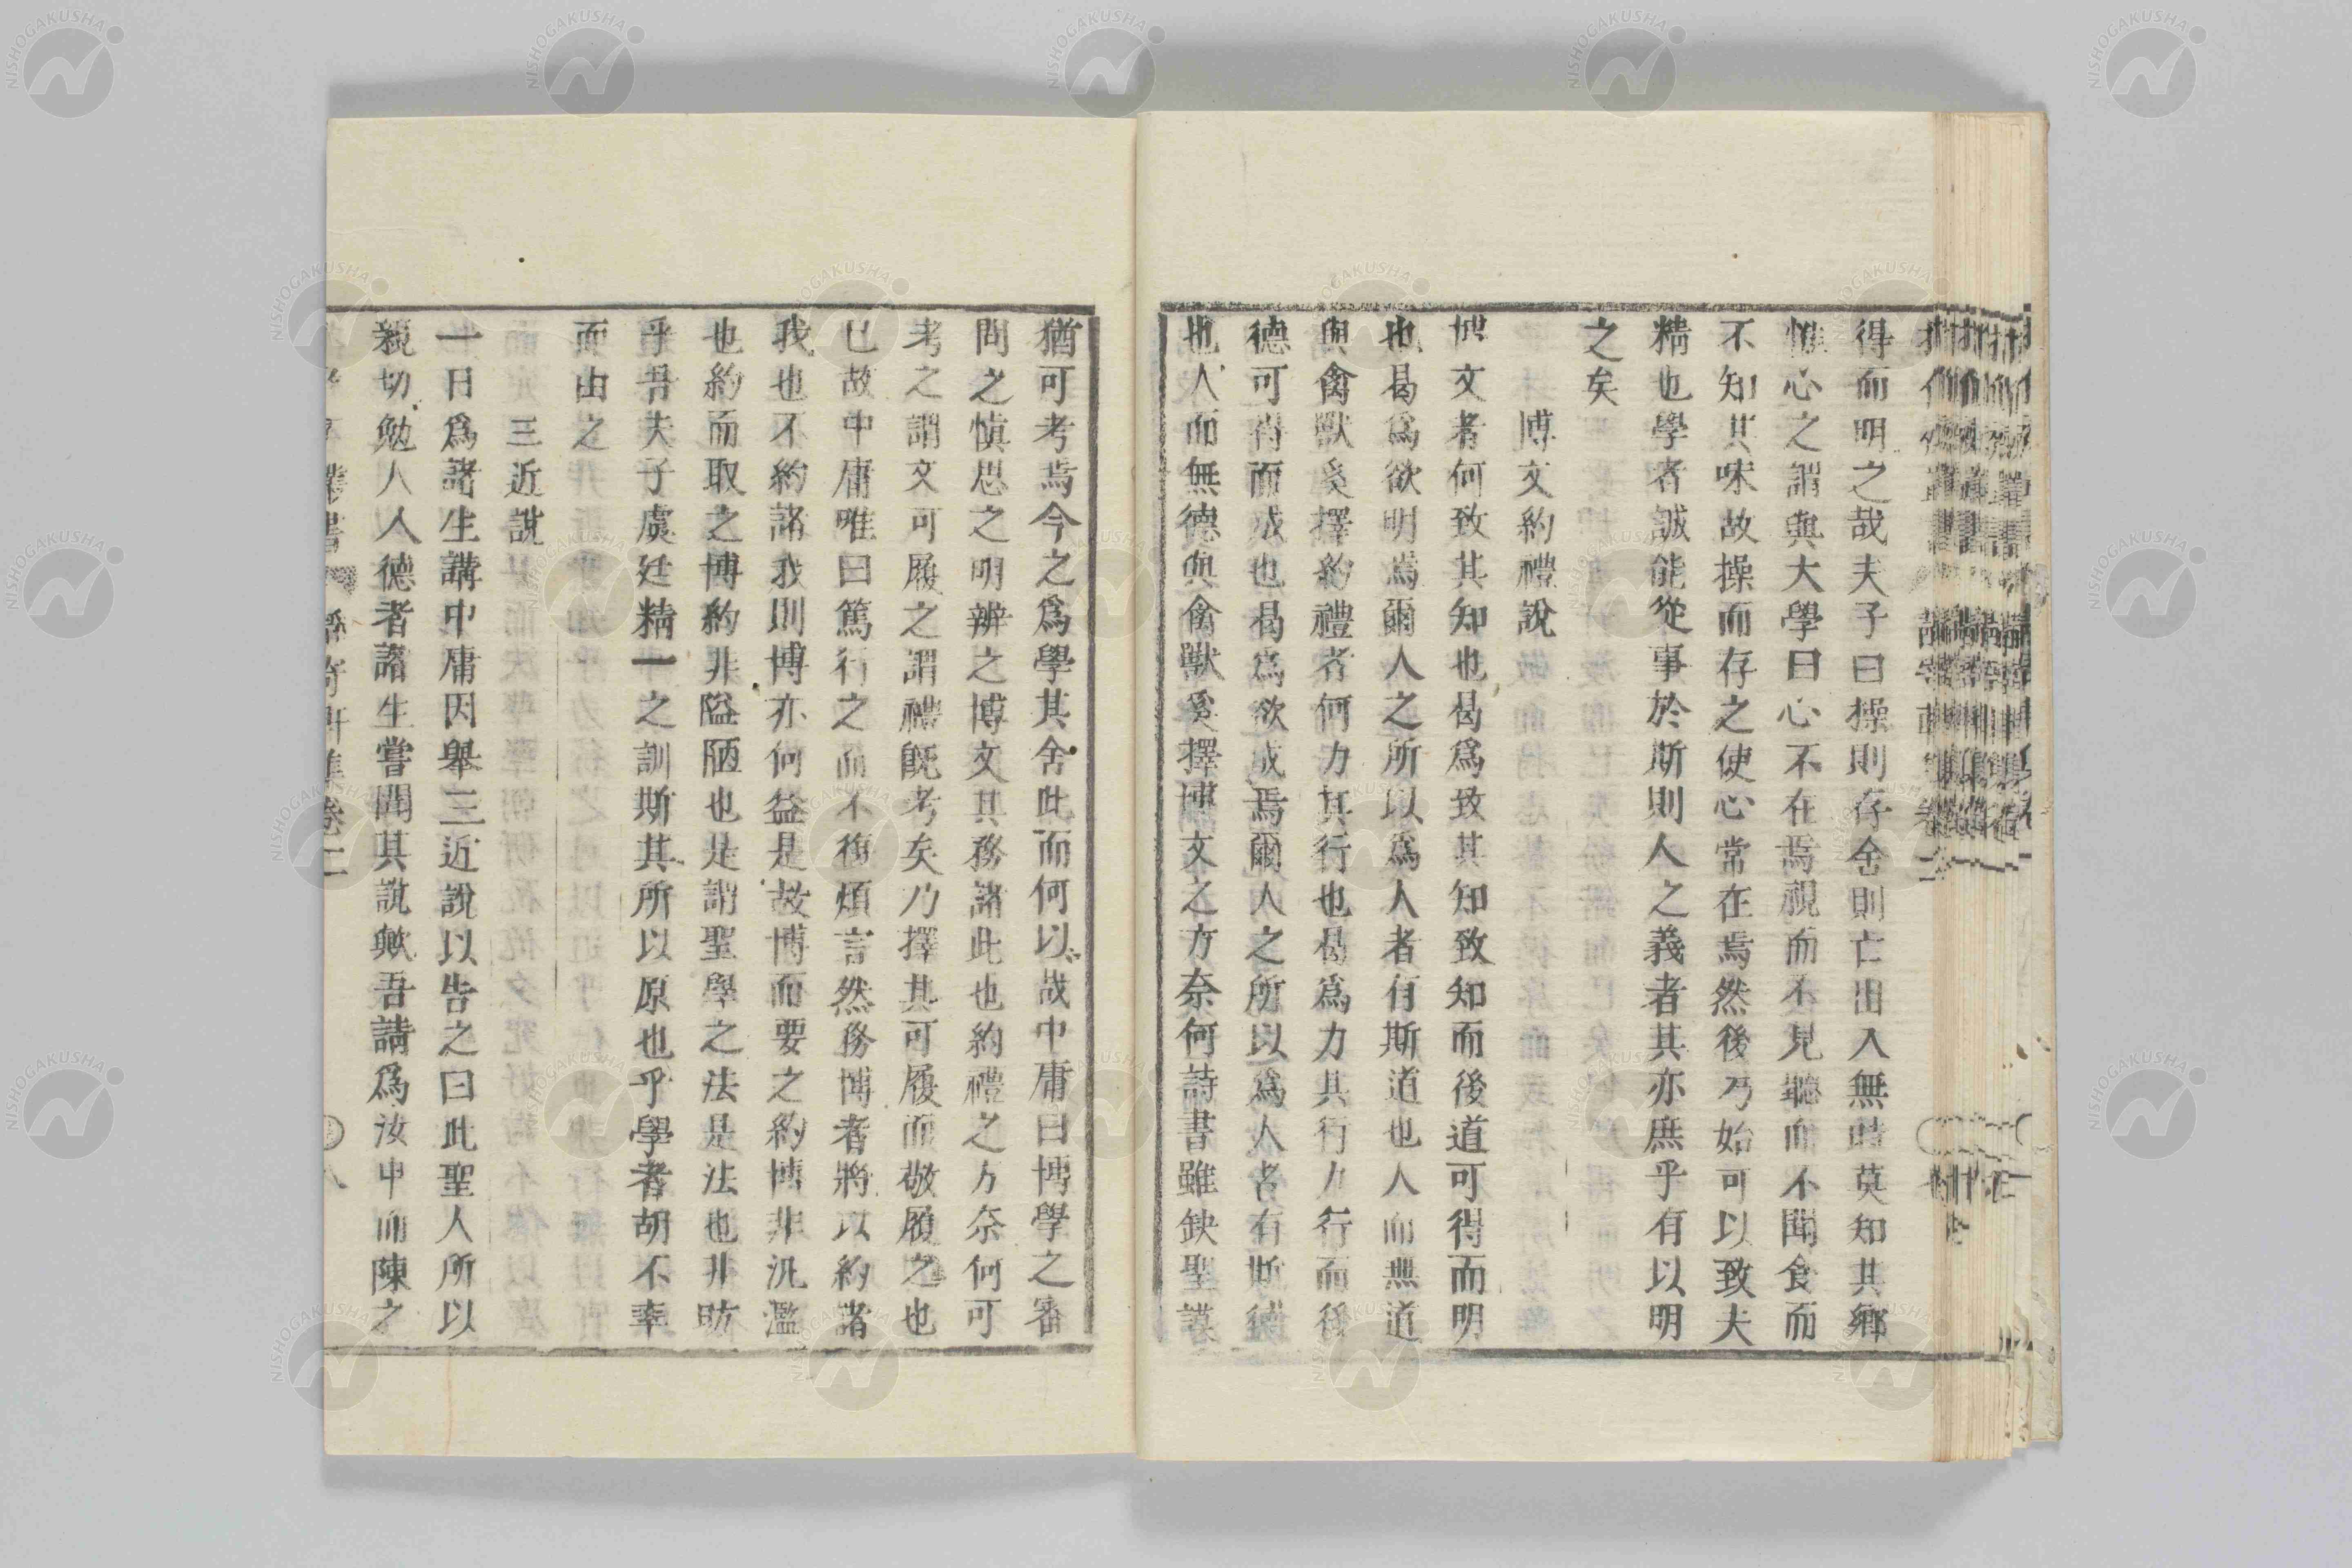 得而明之哉夫子曰操則存舍則亡出入無時莫知其鄉
惟心之謂與大學曰心不在焉視而不見聽而不聞食而
不知其味故操而存之使心常在焉然後乃始可以致夫
精也學者誠能從事於斯則人之義者其亦庶乎有以明
之矣
博文約禮說
博文者何致其知也曷爲致其知致知而後道可得而明
也曷爲欲明焉爾人之所以爲人者有斯道也人而無道
與禽獸奚擇約禮者何力其行也曷爲力其行力行而後
德可得而成也曷爲欲成焉爾人之所以爲人者有斯德
也人而無德與禽獸奚擇博文之方奈何詩書雖缺聖謨
猶可考焉今之爲學其舍此而何以哉中庸曰博學之審
問之慎思之明辨之博文其務諸此也約禮之方奈何可
考之謂文可履之謂禮旣考矣乃擇其可履而敬履之也
已故中庸唯曰篤行之而不復煩言然務博者將以約諸
我也不約諸我則博亦何益是故博而要之約博非汎濫
也約而取之博約非隘陋也是謂聖學之法是法也非昉
乎吾夫子虞廷精一之訓斯其所以原也乎學者胡不率
而由之
三近說
一日爲諸生講中庸因舉三近說以告之曰此聖人所以
親切勉人人德者諸生嘗聞其說歟吾請爲汝申而陳之
卷二
八
NISHOGAKUSHA